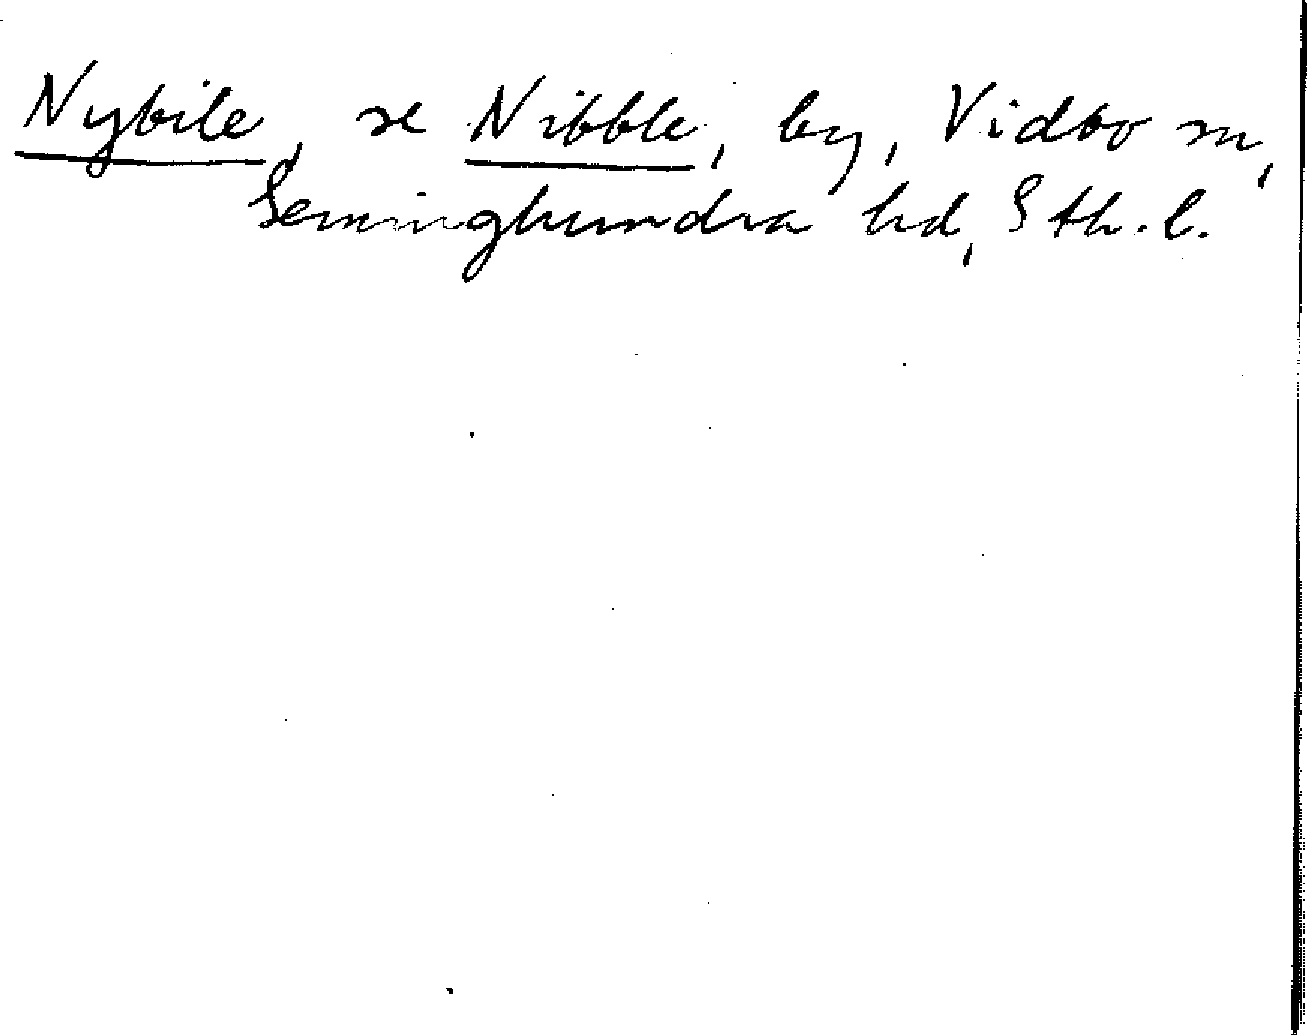 Nybile, se Nibble, by, Vidbo sn,
Seminghundra hd, Sth. l.